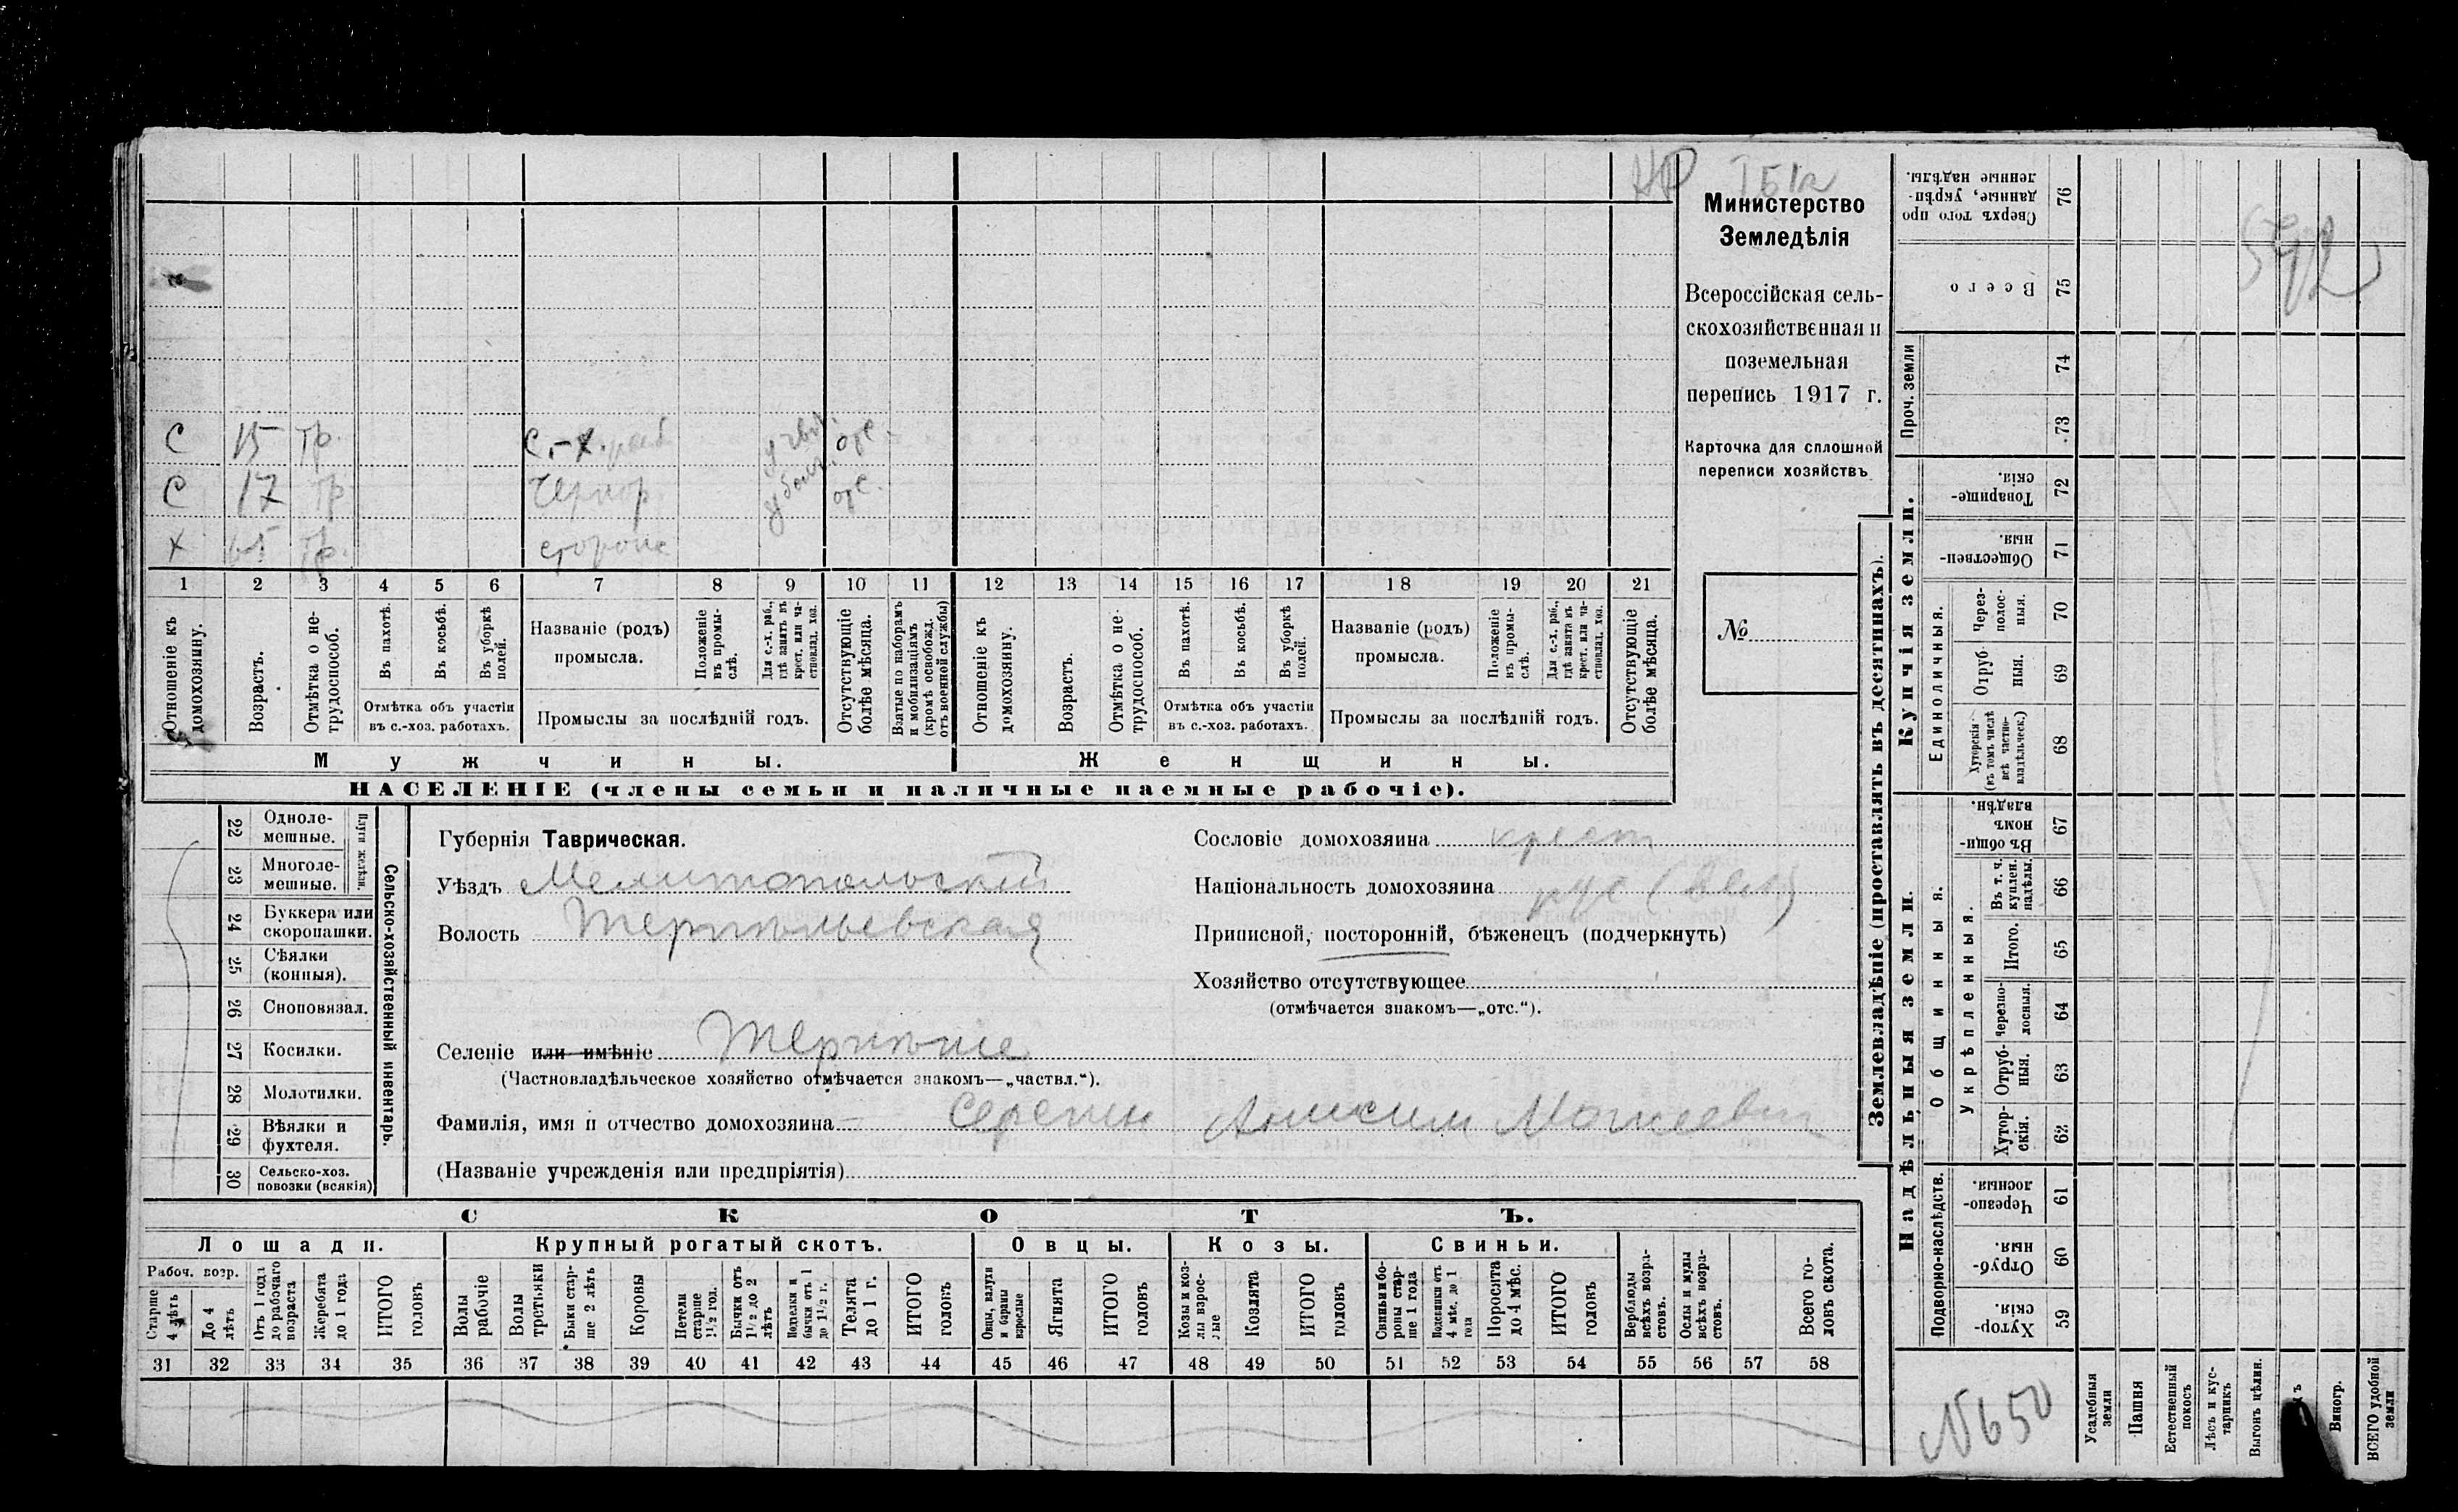 Министерство
Земледѣлія
Всероссійская сель-
скохозяйственная и
поземельная
перепись 1917 г.
Карточка для сплошной
переписи хозяйствъ
№
С 15 тр. с.-х. отс.
С 17 тр. отс.
Х тр.
1 2 3 4 5 6 7 8 9 10 11 12 13 14 15 16 17 18 19 20 21
Отношеніе къ домохозяину.
Возрастъ.
Отмѣтка о не-трудоспособ.
Въ пахотѣ.
Въ косьбѣ.
Въ уборкѣ полей.
Отмѣтка объ участіи
въ с.-хоз. работахъ.
Названіе (родъ)
промысла.
Положеніе въ промы-слѣ.
Для с.-х. раб., гдѣ занятъ въ крест. или ча-стновлад. хоз.
Промыслы за послѣдній годъ.
Отсутствующіе болѣе мѣсяца.
Взятые по наборамъ и мобилизаціямъ (кромѣ освобожд. отъ военной службы)
Отношеніе къ домохозяину.
Возрастъ.
Отмѣтка о не-трудоспособ.
Въ пахотѣ.
Въ косьбѣ.
Въ уборкѣ полей.
Отмѣтка объ участіи
въ с.-хоз. работахъ.
Названіе (родъ)
промысла.
Положеніе въ промы-слѣ.
Для с.-х. раб., гдѣ занята въ крест. или ча-стновлад. хоз.
Промыслы за послѣдній годъ.
Отсутствующіе болѣе мѣсяца.
Мужчины.
Женщины.
НАСЕЛЕНІЕ (члены семьи и наличные наемные рабочіе).
22 Одноле-мешные.
23 Многоле-мешные.
Плуги желѣзн.
24 Буккера или скоропашки.
25 Сѣялки (конныя).
26 Сноповязал.
27 Косилки.
28 Молотилки.
29 Вѣялки и фухтеля.
30 Сельско-хоз. повозки (всякія)
Сельско-хозяйственный инвентарь.
Губернія Таврическая.
Уѣздъ Мелитопольскій
Волость Терпѣньевская
Селеніе или имѣніе Терпѣніе
(Частновладѣльческое хозяйство отмѣчается знакомъ—„частвл.“).
Фамилія, имя и отчество домохозяина Анисим Моисеевич
(Названіе учрежденія или предпріятія)
Сословіе домохозяина крест
Національность домохозяина рус (вел)
Приписной, посторонній, бѣженецъ (подчеркнуть)
Хозяйство отсутствующее
(отмѣчается знакомъ—„отс.“).
СКОТЪ.
Лошади.
Крупный рогатый скотъ.
Овцы.
Козы.
Свиньи.
Рабоч. возр.
Старше 4 лѣтъ
До 4 лѣтъ
Отъ 1 года до рабочаго возраста
Жеребята до 1 года
ИТОГО головъ
Волы рабочіе
Волы третьяки
Быки стар-ше 2 лѣтъ
Коровы
Нетели старше 1½ год.
Бычки отъ 1½ до 2 лѣтъ
Подтелки и бычки отъ 1 до 1½ г.
Телята до 1 г.
ИТОГО головъ
Овцы, валухи и бараны взрослые
Ягнята
ИТОГО головъ
Козы и коз-лы взрос-лые
Козлята
ИТОГО головъ
Свиньи и бо-ровы стар-ше 1 года
Подсвинки отъ 4 мѣс. до 1 года
Поросята до 4 мѣс.
ИТОГО головъ
Верблюды всѣхъ возра-стовъ.
Ослы и мулы всѣхъ возра-стовъ.
Всего го-ловъ скота.
31 32 33 34 35 36 37 38 39 40 41 42 43 44 45 46 47 48 49 50 51 52 53 54 55 56 57 58
Землевладѣніе (проставлять въ десятинахъ).
Купчія земли.
Надѣльныя земли.
Сверхъ того про-данные, укрѣп-ленные надѣлы. 76
Всего 75
Проч. земли
74
73
Товарище-скія. 72
Обществен-ныя. 71
Единоличныя.
Через-полос-ныя. 70
Отруб-ныя. 69
Хуторскія (въ томъ числѣ всѣ частно-владѣльческ.) 68
Общинныя.
Въ общин-номъ владѣн. 67
Укрѣпленныя.
Въ т. ч. куплен. надѣлы. 66
Итого. 65
Черезпо-лосныя. 64
Отруб-ныя. 63
Хутор-скія. 62
Подворно-наслѣдств.
Черезпо-лосныя. 61
Отруб-ныя. 60
Хутор-скія. 59
N650
Усадебныя земли
Пашня
Естественный покосъ
Лѣсъ и кус-тарникъ
Выгонъ цѣлин.
Виногр.
ВСЕГО удобной земли